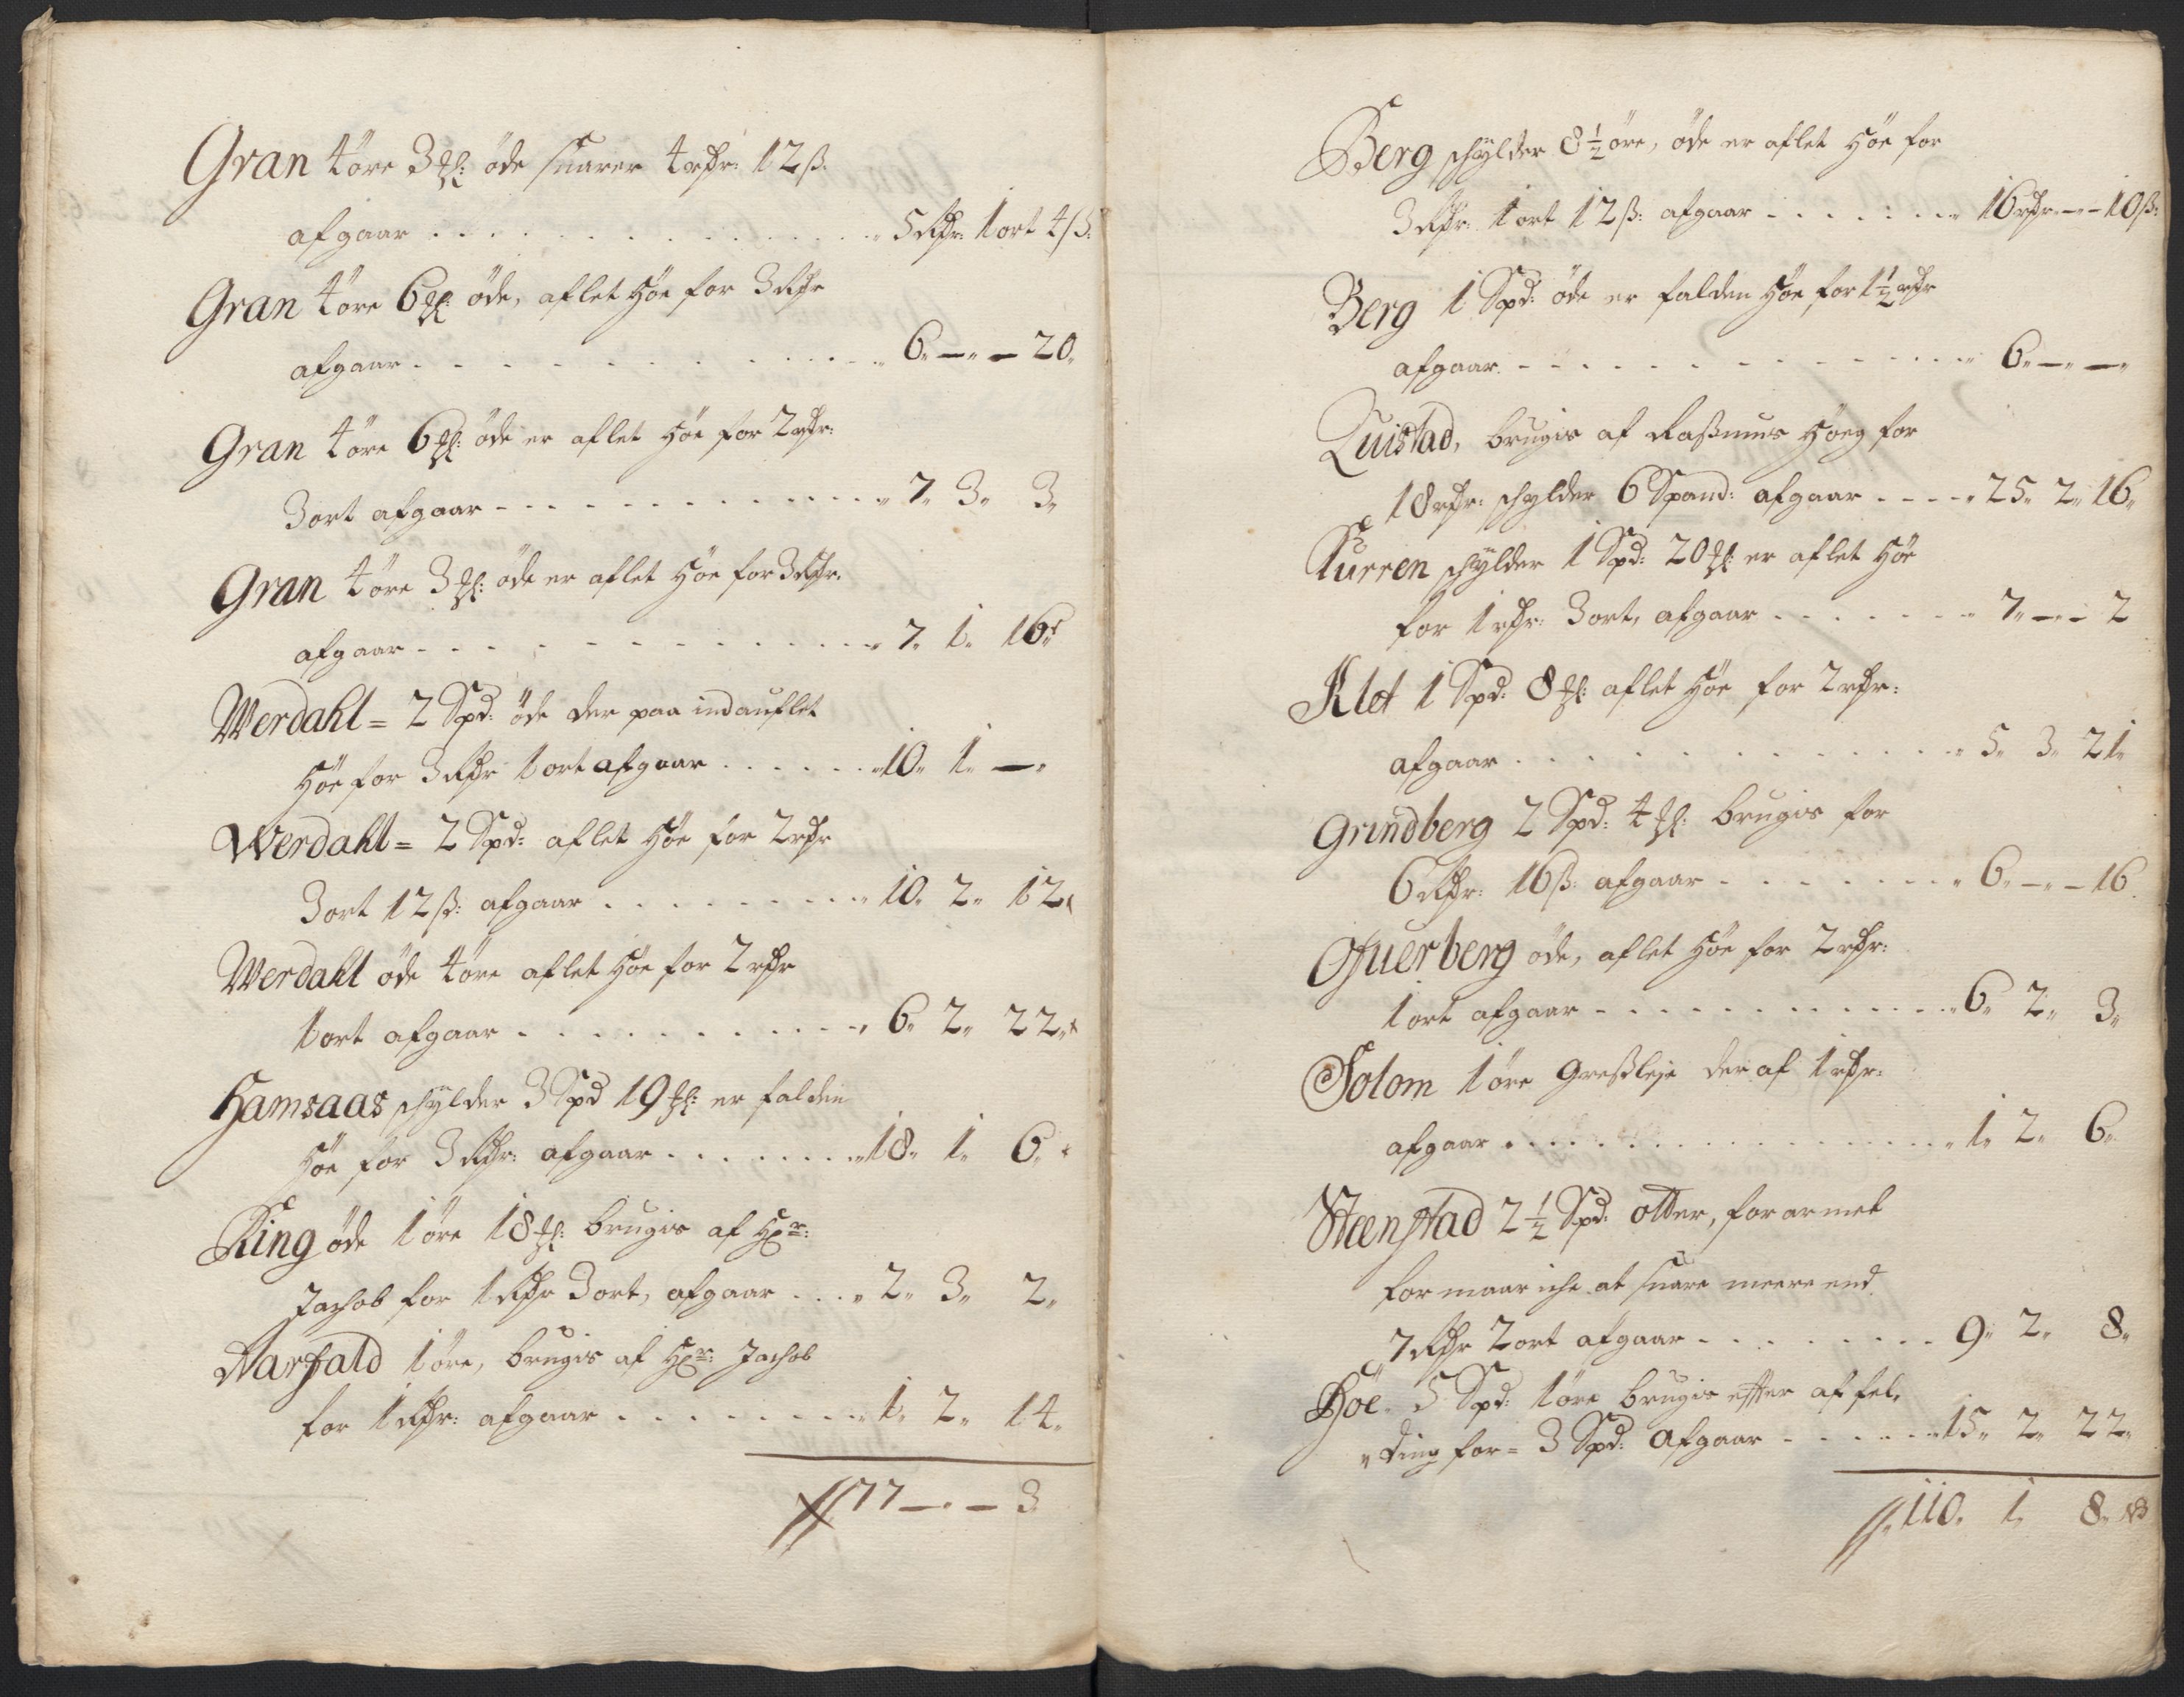 Gran 4 öre 3 ℔: öde suarer 4 rdr: 12 ß.
afgaar . . . . . . . . . . 5 Rdr: 1 ort 4 ß:
Gran 4 öre 6 ℔: öde, aflet Höe for 3 Rdr
afgaar . . . . . . . . . . 6. — . — 20.
Gran 4 öre 6 ℔: öde er aflet Höe for 2 rdr:
3 ort afgaar - - - - - - - - - - 7. 3. 3.
Gran 4 öre 3 ℔: öde er aflet Höe for 3 Rdr.
afgaar - - - - - - - - - - 7. 1. 16.
Werdahl = 2 Spd: öde der paa ind auflet
Höe for 3 Rdr 1 ort afgaar . . . . . . 10. 1. — .
Werdahl = 2 Spd: aflet Höe for 2 rdr
3 ort 12 ß: afgaar . . . . . . . . 10. 2. 12.
Werdahl öde 4 öre aflet Höe for 2 rdr
1 ort afgaar . . . . . . . . . . 6. 2. 22.
Hamsaas schylder 3 Spd 19 ℔: er falden
Höe for 3 Rdr: afgaar . . . . . . . 18. 1. 6.
Ring öde 1 öre 18 ℔: brugis af Hr:
Jachob for 1 Rdr 3 ort, afgaar . . . 2. 3. 2.
Aarfald 1 öre, brugis af Hr: Jachob
for 1 Rdr: afgaar . . . . . . . . 1. 2. 14.
77 — . — 3
Berg schylder 8 ½ öre, öde er aflet Höe for
3 Rdr: 1 ort 12 ß: afgaar . . . . . . . 16 rdr — . — 10 ß:
Berg 1 Spd: öde er falden Höe for 1 ½ rdr
afgaar. - - - - - - - - - - 6. — . — .
Quistad, brugis af Rasmus Höeg for
18 rdr: schylder 6 Spand: afgaar - - - - 25. 2. 16.
Kurren schylder 1 Spd: 20 ℔: er aflet Höe
for 1 rdr: 3 ort, afgaar . . . . . . . 7. — . — 2
Klet 1 Spd: 8 ℔: aflet Höe for 2 rdr:
afgaar . . . . . . . . . . 5. 3. 21.
Grindberg 2 Spd: 4 ℔: brugis for
6 Rdr: 16 ß: afgaar . . . . . . . . 6. — . — 16.
Ofuerberg öde, aflet Höe for 2 rdr:
1 ort afgaar - - - - - - - - - - 6. 2. 3.
Solom 1 öre Gressleje der af 1 rdr:
afgaar . . . . . . . . . . 1. 2. 6.
Steenstad 2 ½ Spd: otter, forarmet
formaar iche at suare meere end
7 Rdr 2 ort afgaar - - - - - - - - 9. 2. 8.
Höe. 5 Spd: 1 öre brugis efter affel.
„ ding for = 3 Spd: Afgaar - - - - - - 15. 2. 22.
110. 1. 8.